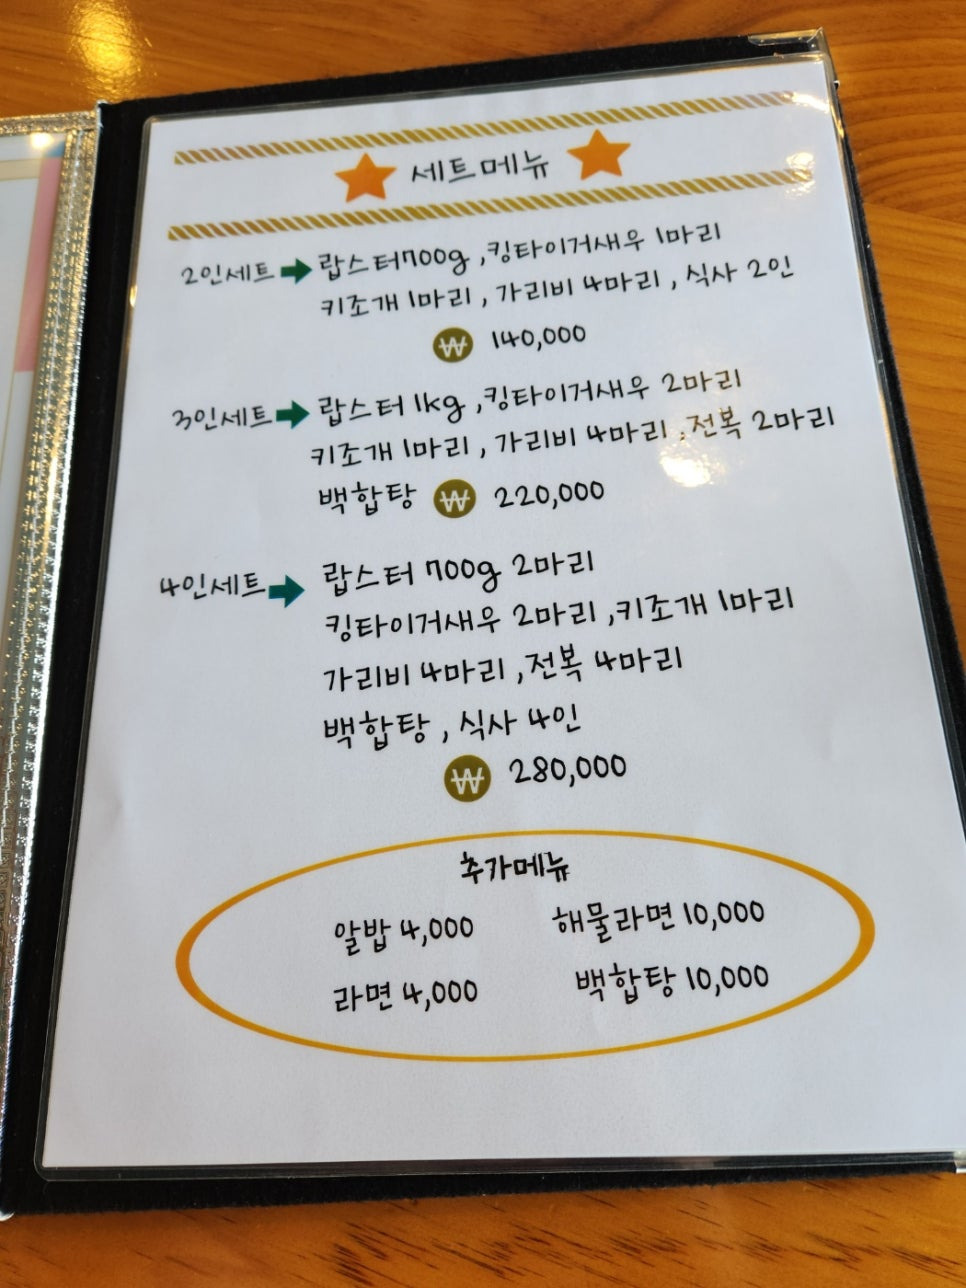 세트메뉴
2인세트 랍스터700g ,킹타이거새우 1마리
키조개 1마리 , 가리비 4마리 , 식사 2인
₩ 140,000
3인세트 랍스터 1kg ,킹타이거새우 2마리
키조개 1마리 , 가리비 4마리 ,전복 2마리
백합탕 ₩ 220,000
4인세트 랍스터 700g 2마리
킹타이거새우 2마리 ,키조개 1마리
가리비 4마리 ,전복 4마리
백합탕 , 식사 4인
₩ 280,000
추가메뉴
알밥 4,000 해물라면 10,000
라면 4,000 백합탕 10,000